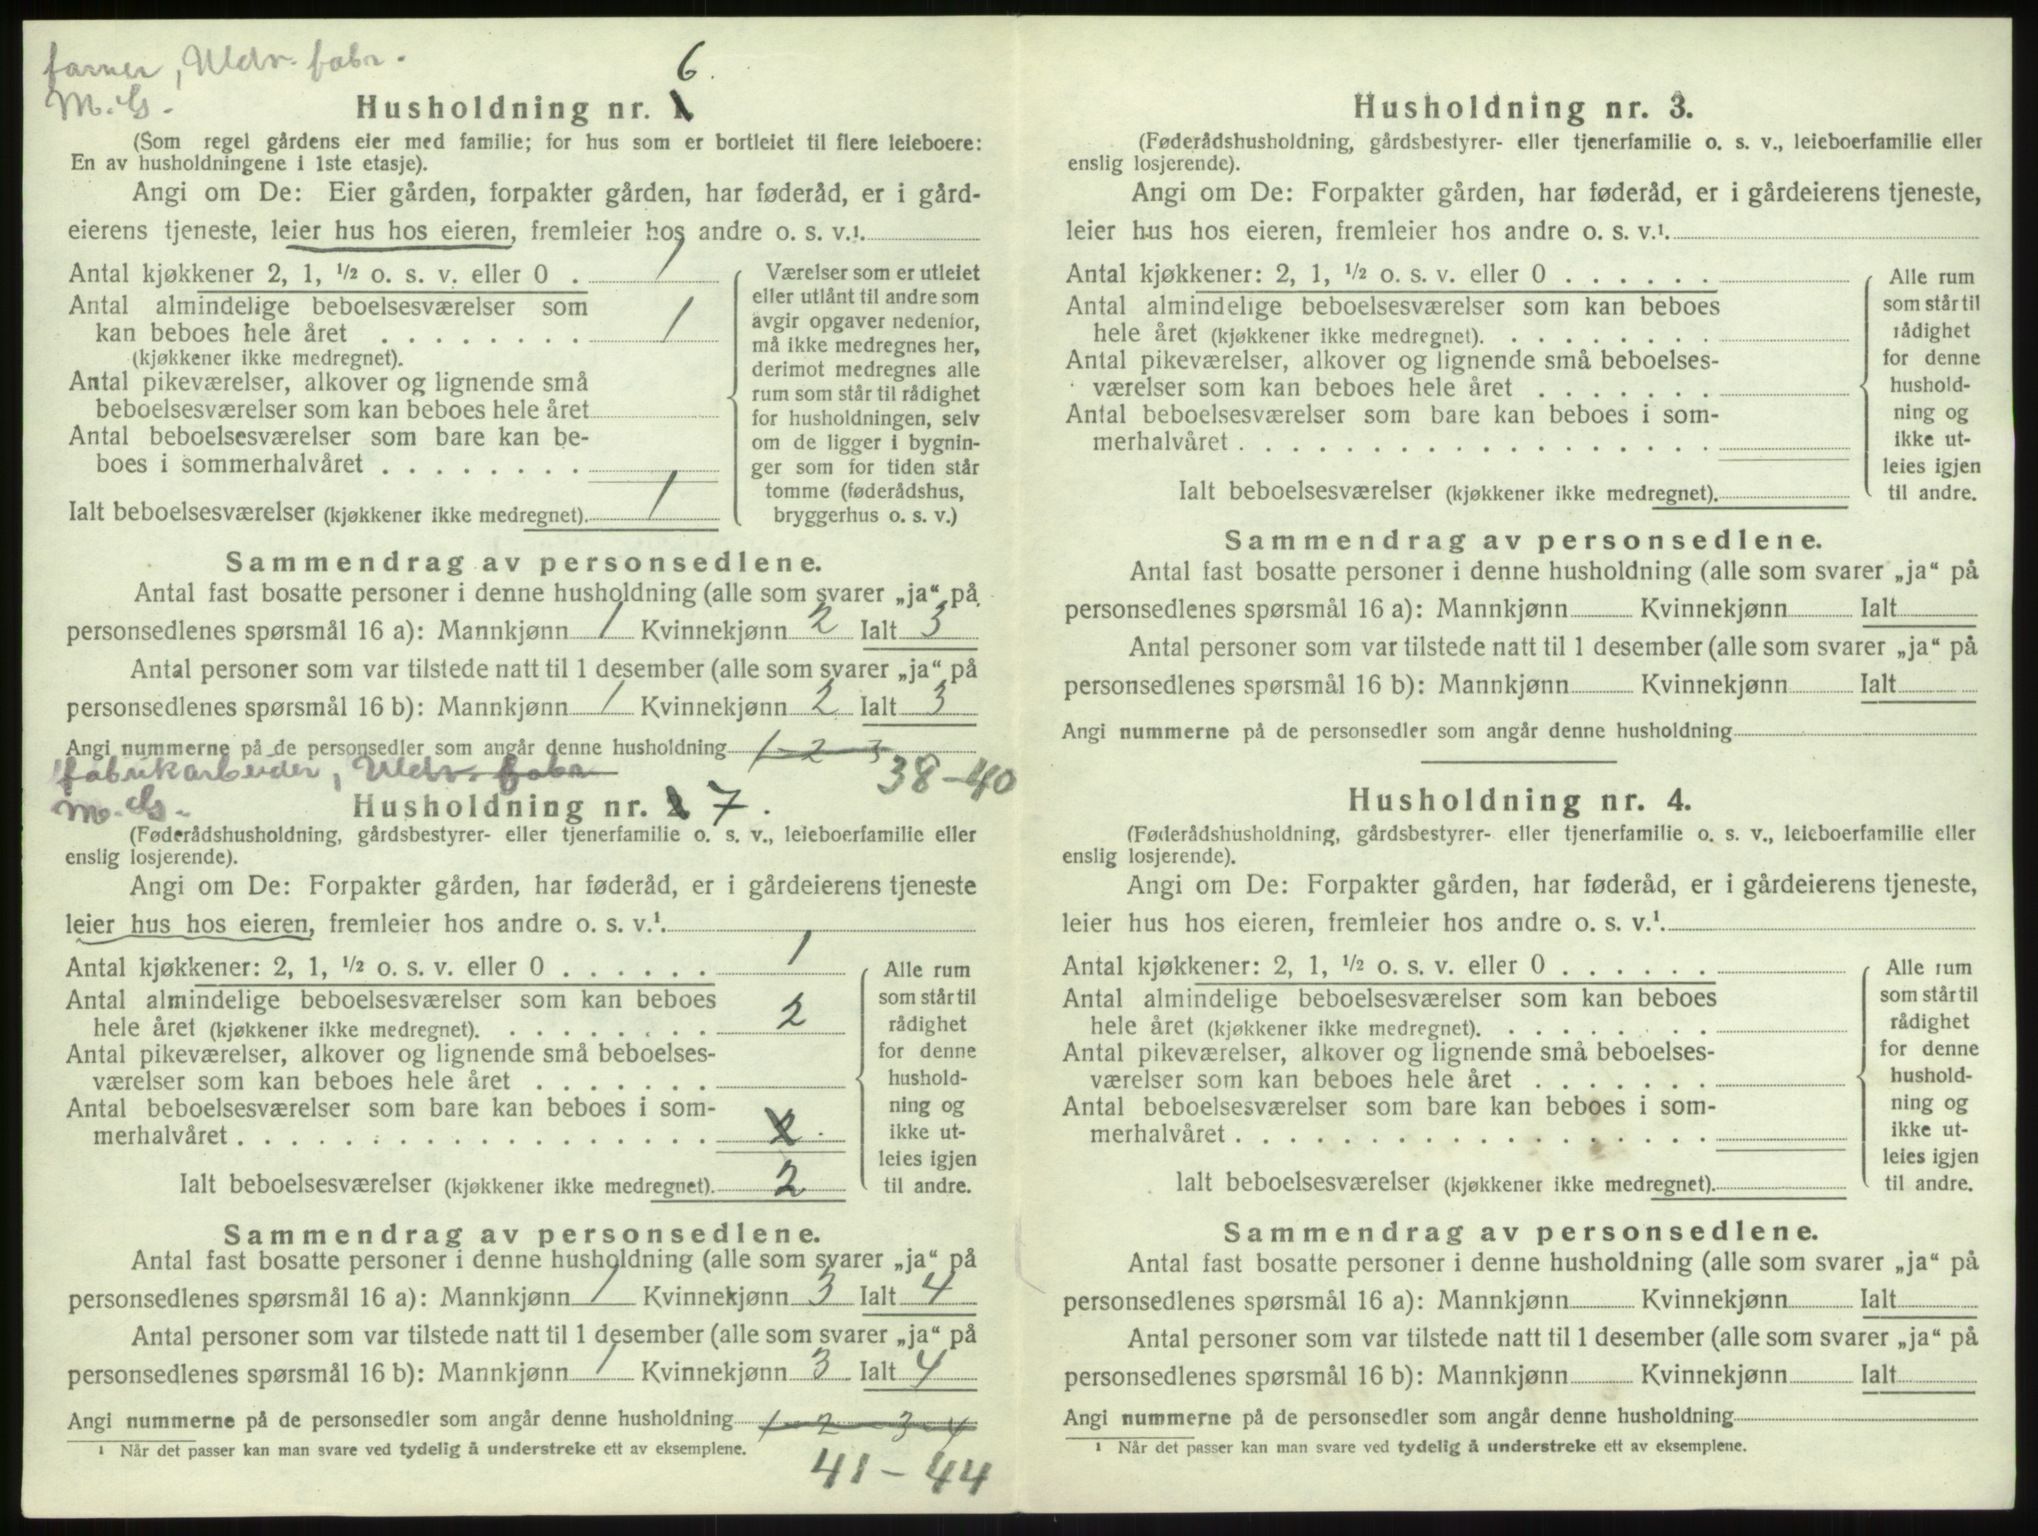 farver, Uldv. fabr.
M. G.
6.
Husholdning nr. 1
(Som regel gårdens eier med familie; for hus som er bortleiet til flere leieboere:
En av husholdningene i 1ste etasje).
Angi om De: Eier gården, forpakter gården, har føderåd, er i gård-
eierens tjeneste, leier hus hos eieren, fremleier hos andre o. s. v.¹.
Antal kjøkkener 2, 1, ½ o. s. v. eller 0 . 1
Antal almindelige beboelsesværelser som
kan beboes hele året . . . . . . . . 1
(kjøkkener ikke medregnet).
Antal pikeværelser, alkover og lignende små
beboelsesværelser som kan beboes hele året
Antal beboelsesværelser som bare kan be-
boes i sommerhalvåret . . . . . . . .
Ialt beboelsesværelser (kjøkkener ikke medregnet). 1
Værelser som er utleiet
eller utlånt til andre som
avgir opgaver nedenfor,
må ikke medregnes her,
derimot medregnes alle
rum som står til rådighet
for husholdningen, selv
om de ligger i bygnin-
ger som for tiden står
tomme (føderådshus,
bryggerhus o. s. v.)
Sammendrag av personsedlene.
Antal fast bosatte personer i denne husholdning (alle som svarer „ja“ på
personsedlenes spørsmål 16 a): Mannkjønn 1 Kvinnekjønn 2 Ialt 3
Antal personer som var tilstede natt til 1 desember (alle som svarer „ja“ på
personsedlenes spørsmål 16 b): Mannkjønn 1 Kvinnekjønn 2 Ialt 3
Angi nummerne på de personsedler som angår denne husholdning 1 2 3
38-40
fabrikarbeider, Uldv. fabr
M. G.
Husholdning nr. 2 7.
(Føderådshusholdning, gårdsbestyrer- eller tjenerfamilie o. s. v., leieboerfamilie eller
enslig losjerende).
Angi om De: Forpakter gården, har føderåd, er i gårdeierens tjeneste
leier hus hos eieren, fremleier hos andre o. s. v.¹.
Antal kjøkkener: 2, 1, ½ o. s. v. eller 0 . . . . . . 1
Antal almindelige beboelsesværelser som kan beboes
hele året (kjøkkener ikke medregnet). . . . . . . . . 2
Antal pikeværelser, alkover og lignende små beboelses-
værelser som kan beboes hele året . . . . . . .
Antal beboelsesværelser som bare kan beboes i som-
merhalvåret . . . . . . . . . . . . . . . . . . 2
Ialt beboelsesværelser (kjøkkener ikke medregnet). 2
Alle rum
som står til
rådighet
for denne
hushold-
ning og
ikke ut-
leies igjen
til andre.
Sammendrag av personsedlene.
Antal fast bosatte personer i denne husholdning (alle som svarer „ja“ på
personsedlenes spørsmål 16 a): Mannkjønn 1 Kvinnekjønn 3 Ialt 4
Antal personer som var tilstede natt til 1 desember (alle som svarer „ja“ på
personsedlenes spørsmål 16 b): Mannkjønn 1 Kvinnekjønn 3 Ialt 4
Angi nummerne på de personsedler som angår denne husholdning 1 2 3 4
¹ Når det passer kan man svare ved tydelig å understreke ett av eksemplene.
41-44
Husholdning nr. 3.
(Føderådshusholdning, gårdsbestyrer- eller tjenerfamilie o. s. v., leieboerfamilie eller
enslig losjerende).
Angi om De: Forpakter gården, har føderåd, er i gårdeierens tjeneste,
leier hus hos eieren, fremleier hos andre o. s. v.¹.
Antal kjøkkener: 2, 1, ½ o. s. v. eller 0 . . . . . .
Antal almindelige beboelsesværelser som kan beboes
hele året (kjøkkener ikke medregnet). . . . . . . . .
Antal pikeværelser, alkover og lignende små beboelses-
værelser som kan beboes hele året . . . . . . .
Antal beboelsesværelser som bare kan beboes i som-
merhalvåret . . . . . . . . . . . . . . . . . .
Ialt beboelsesværelser (kjøkkener ikke medregnet).
Alle rum
som står til
rådighet
for denne
hushold-
ning og
ikke ut-
leies igjen
til andre.
Sammendrag av personsedlene.
Antal fast bosatte personer i denne husholdning (alle som svarer „ja“ på
personsedlenes spørsmål 16 a): Mannkjønn Kvinnekjønn Ialt
Antal personer som var tilstede natt til 1 desember (alle som svarer „ja“ på
personsedlenes spørsmål 16 b): Mannkjønn Kvinnekjønn Ialt
Angi nummerne på de personsedler som angår denne husholdning
Husholdning nr. 4.
(Føderådshusholdning, gårdsbestyrer- eller tjenerfamilie o. s. v., leieboerfamilie eller
enslig losjerende).
Angi om De: Forpakter gården, har føderåd, er i gårdeierens tjeneste,
leier hus hos eieren, fremleier hos andre o. s. v.¹.
Antal kjøkkener: 2, 1, ½ o. s. v. eller 0 . . . . . .
Antal almindelige beboelsesværelser som kan beboes
hele året (kjøkkener ikke medregnet). . . . . . . . .
Antal pikeværelser, alkover og lignende små beboelses-
værelser som kan beboes hele året . . . . . . .
Antal beboelsesværelser som bare kan beboes i som-
merhalvåret . . . . . . . . . . . . . . . . . .
Ialt beboelsesværelser (kjøkkener ikke medregnet).
Alle rum
som står til
rådighet
for denne
hushold-
ning og
ikke ut-
leies igjen
til andre.
Sammendrag av personsedlene.
Antal fast bosatte personer i denne husholdning (alle som svarer „ja“ på
personsedlenes spørsmål 16 a): Mannkjønn Kvinnekjønn Ialt
Antal personer som var tilstede natt til 1 desember (alle som svarer „ja“ på
personsedlenes spørsmål 16 b): Mannkjønn Kvinnekjønn Ialt
Angi nummerne på de personsedler som angår denne husholdning
¹ Når det passer kan man svare ved tydelig å understreke ett av eksemplene.